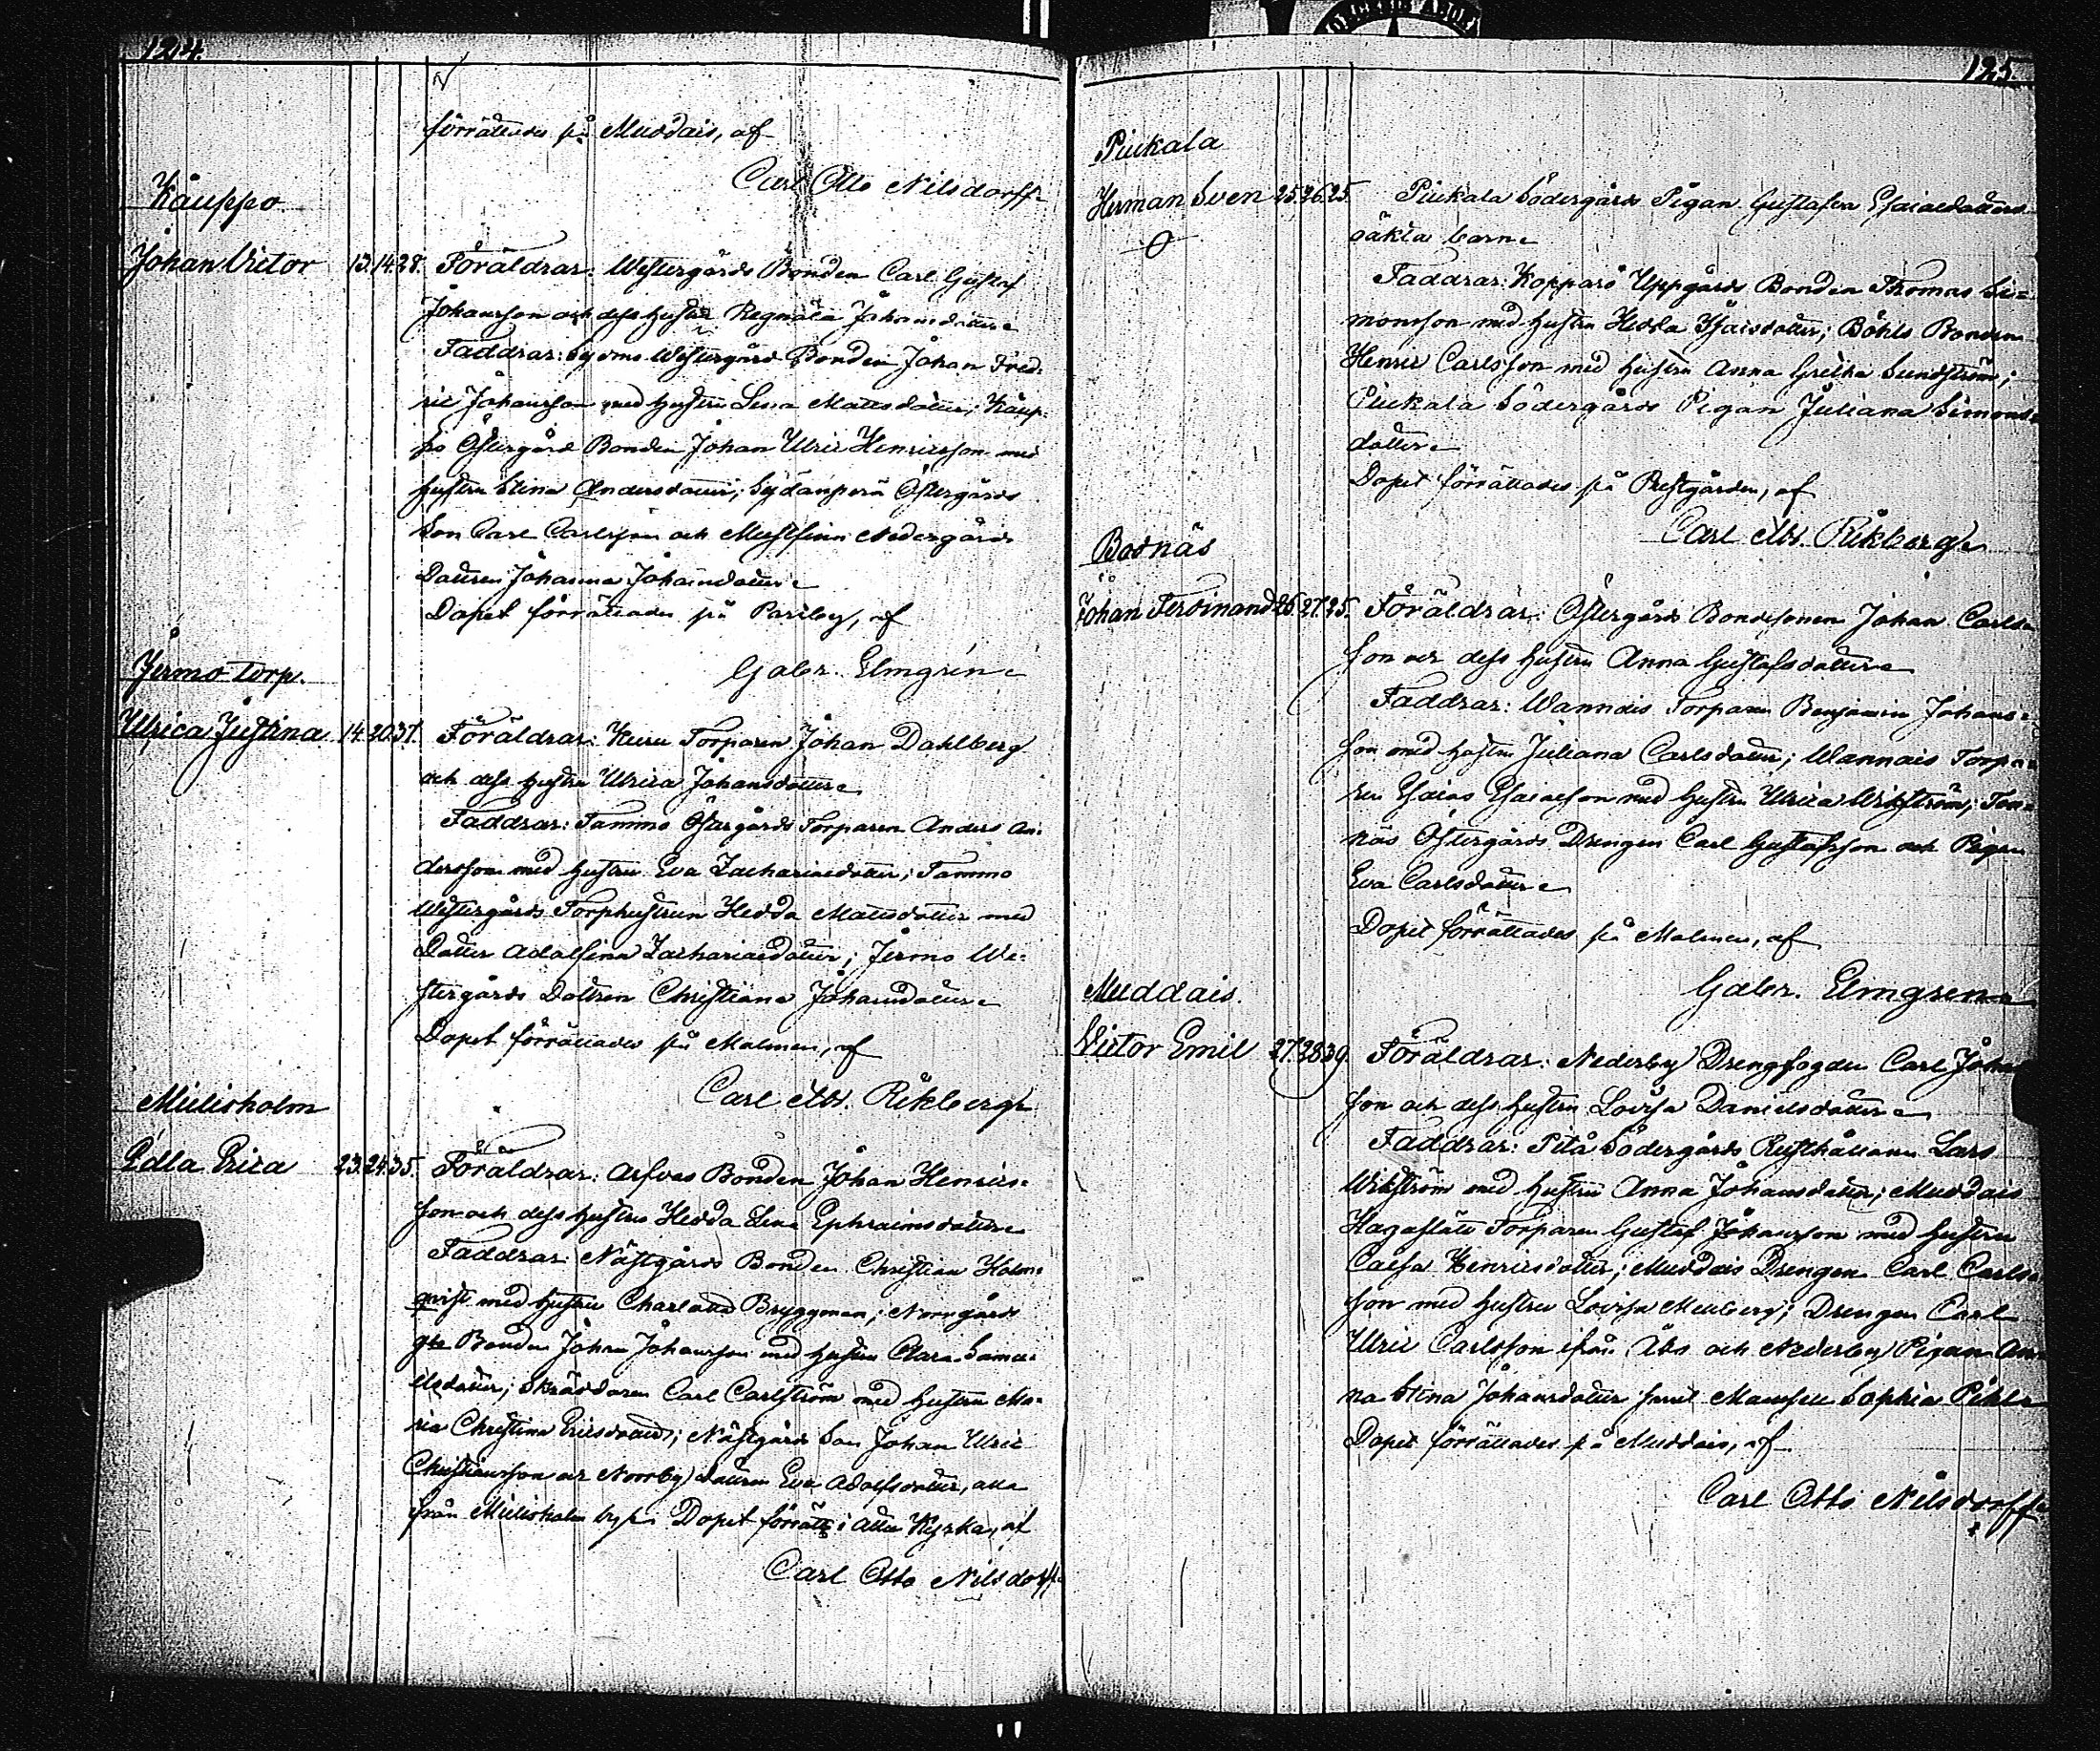 124.
förrättades på Muddais, af
Carl Otto Nilsdorff
Kauppo
Johan Victor 13. 14. 28. Föräldrar: Westergårds Bonden Carl Gustaf
Johansson och dess hustru Regnäla Johansdotter
Faddrar: Westergård Bonden Johan Fred-
ric Johansson med hustru Lena Mattsdotter; Kaup-
po Östergård Bonden Johan Ulric Henricsson med
hustru Stina Andersdotter; Sydänperä Östergårds
Son Carl Carlsson och Nedergårds
Dottren Johanna Johansdotter
Dopet förrättades på Parsby, af
Gabr. Elmgren
Jermo torp.
Ulrica Justina 14. 20. 37. Föräldrar: Kuru Torparen Johan Dahlberg
och dess hustru Ulrica Johansdotter
Faddrar: Tammo Östergårds Torparen Anders An-
dersson med hustru Eva Zachariaedotter; Tammo
Westergårds Torphustrun Hedda Mattsdotter med
Dotter Adolfina Zachariaedotter; Jermo We-
stergårds Dottren Christiana Johansdotter
Dopet förrättades på Malmen, af
Carl Ab. Rikberg
Mielisholm
Edla Erica 23. 24. 35. Föräldrar: Arfvas Bonden Johan Henrics-
son och dess hustru Hedda Lena Ephraimsdotter
Faddrar: Nästgårds Bonden Christian Holm-
qvist med hustru Charlotta Bryggman; Norrgårds
Bonden Johan Johansson med hustru Clara Samu-
elsdotter; Skräddaren Carl Carlström med hustru Ma-
ria Christina Ericsdotter; Nästgårds Son Johan Ulric
Christiansson och Norrby dottren Eva Adolfsdotter, alla
från Mielisholm by. Dopet förrätts i Kyrka, af
Carl Otto Nilsdorff
125.
Piukala
Herman Sven 25. 26. 25. Piukala Södergårds Pigan Gustafva Esaiaedotters
oäkta barn
Faddrar: Kopparö Uppgårds Bonden Thomas Si-
monsson med hustru Hedda Esaisdotter; Böhle Bonden
Henric Carlsson med hustru Anna Greta Sundström;
Piukala Södergårds Pigan Juliana Simons-
dotter
Dopet förrättades på Prestgården, af
Carl Ab. Rikberg
Bodnäs
Johan Ferdinand 26. 27. 25. Föräldrar: Östergårds Bondesonen Johan Carls-
son och dess hustru Anna Gustafsdotter
Faddrar: Wannais Torparen Benjamin Johans-
son med hustru Juliana Carlsdotter; Wannais Torpa-
ren Esaias Esaiaeson med hustru Ulrica Wikström;
Östergårds Drengen Carl Gustafsson och Pigan
Eva Carlsdotter
Dopet förrättades på Malmen, af
Gabr. Elmgren
Muddais.
Victor Emil 27. 28. 39. Föräldrar: Nederby Drengfogden Carl Johan
son och dess hustru Lovisa Danielsdotter
Faddrar: Pitå Södergårds Rusthållaren Lars
Wikström med hustru Anna Johansdotter; Muddais
Hagaslätt Torparen Gustaf Johansson med hustru
Caisa Henricsdotter; Muddais Drengen Carl Carls-
son med hustru Lovisa Meuberg; Drengen Carl
Ulric Carlsson ifrån Åbo och Nederby Pigan An-
na Stina Johansdotter samt Mamsell Sophia
Dopet förrättades på Muddais, af
Carl Otto Nilsdorff